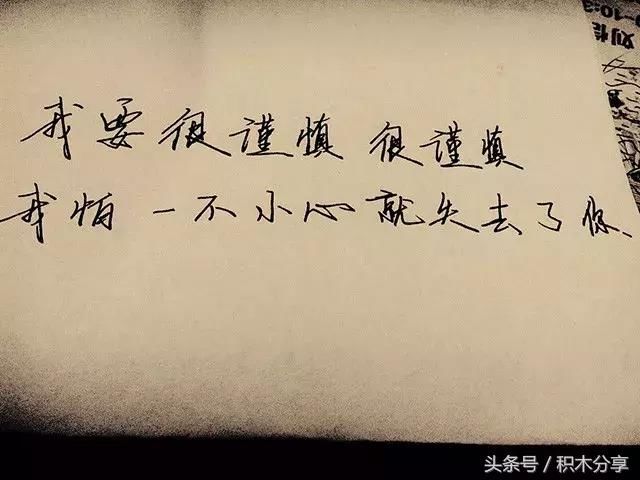 我要很谨慎 很谨慎
我怕一不小心就失去了你、
头条号 / 积木分享